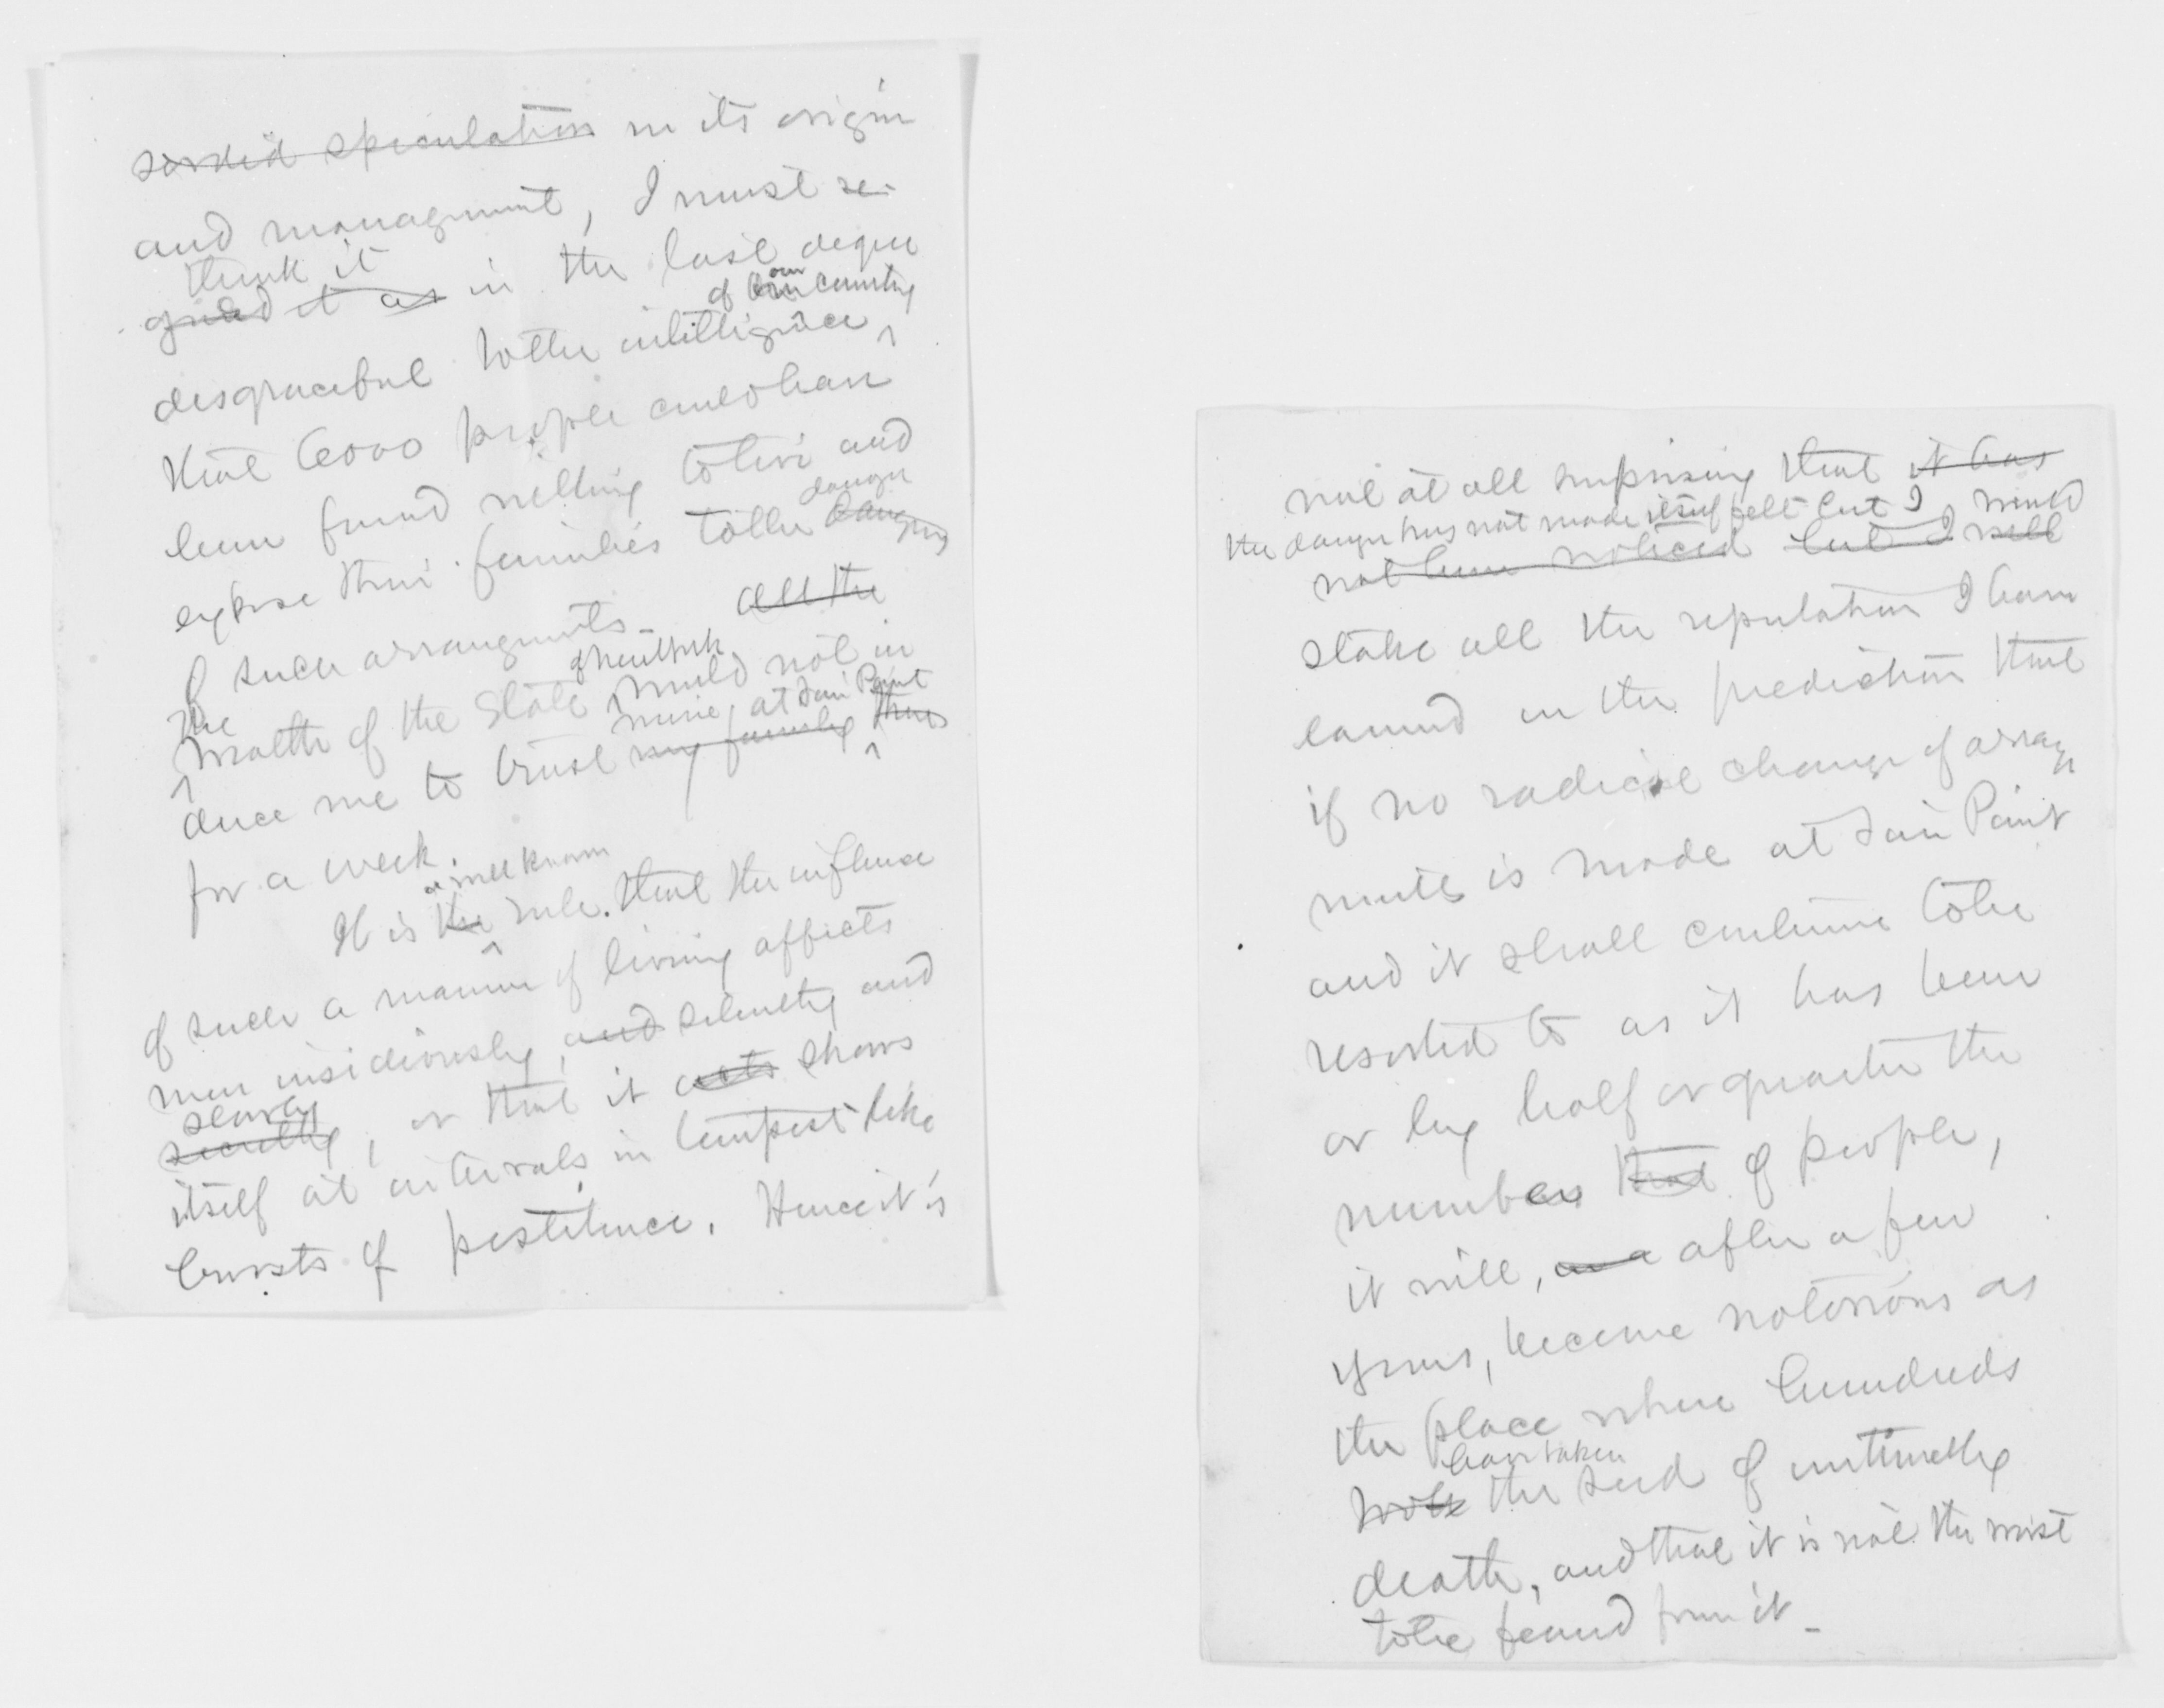 sordid speculation in its origin
and managment, I must re-
think it
gard it as in the last degree
of our our country
disgraceful to the intelligence
that 6000 people could have
been found willing to live and
danger
expose their families to the dangers
of such arrangments. all the
of New York
The wealth of the State would not in
mine, at Fair Point
duce me to trust my family there
for a week.
a well known
It is the rule that the influence
of such a manner of living affects
men insidiously, and silently and
slowly
secretly, or that it acts shows
itself at intervals in tempest like
bursts of pestilence. Hence it is
not at all surprising that it has
the danger has not made itself felt but I would
not been noticed but I will
stake all the reputation I have
earned on the prediction that
if no radical change of arrang
ments is made at Fair Point
and it shall continue to be
resorted to as it has been
or by half or quarter the
numbers that of people,
it will, after a few
years, become notorious as
the place where hundreds
have taken
took the seed of untimely
death, and that it is not the worst
to be feared from it-